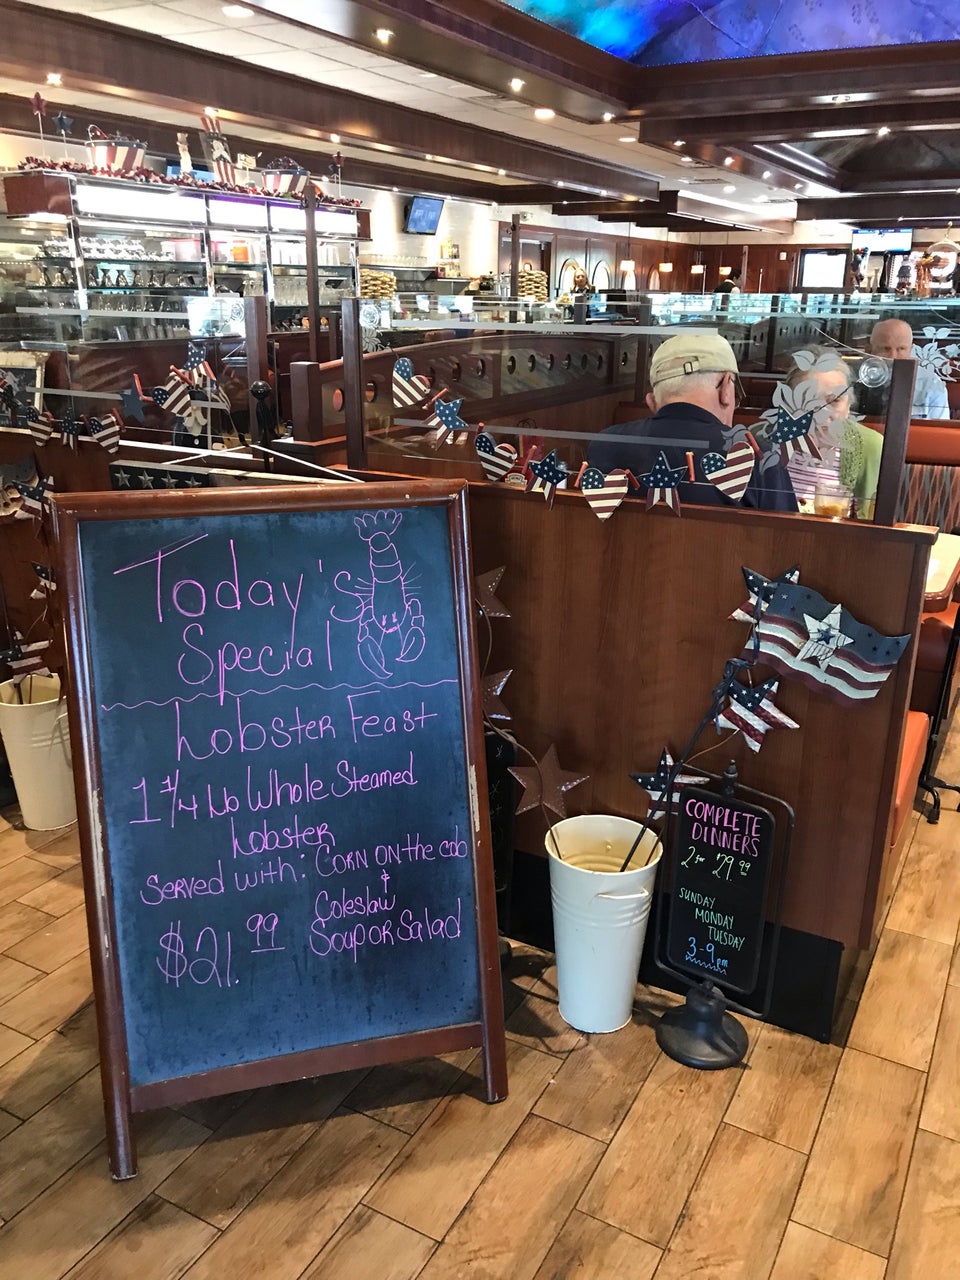 Today's
Special
Lobster Feast
1 1/4 lb Whole Steamed
Lobster
Served with: Corn on the cob
&
Coleslaw
Soup or Salad
$21.99
COMPLETE
DINNERS
2 for $29.99
SUNDAY
MONDAY
TUESDAY
3-9pm